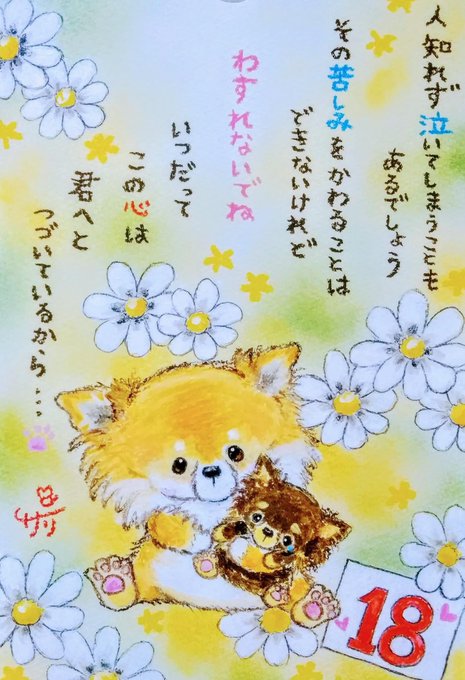 人知れず泣いてしまうことも
あるでしょう
その苦しみをかわることは
できないけれど
わすれないでね
いつだって
この心は
君へと
つづいているから…
18